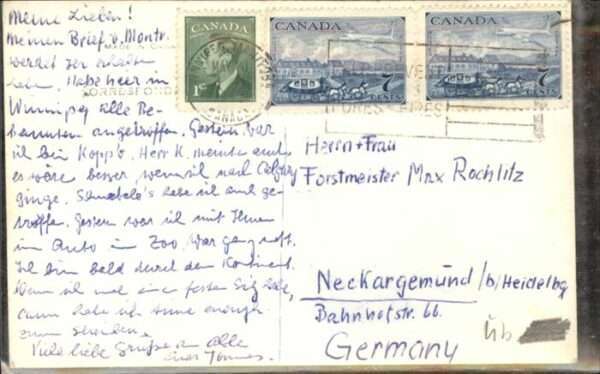 Meine Lieben!
Meinen Brief v. Montr.
werdet Ihr erhalten
haben. Habe hier in
Winnipeg alle Be-
kannten angetroffen. Gestern war
ich bei Kopp's. Herr K. meinte auch
es wäre besser wenn ich nach Calgary
ginge. habe ich auch ge-
troffen. Gestern war ich mit Ihnen
im Auto im Zoo. War ganz nett.
Ich bin bald durch den Kontinent.
Wenn ich mal einen festen Sitz habe,
dann habe ich
zum schreiben.
Viele liebe Grüsse an alle
Euer
CANADA
1
CANADA
7 CENTS
CANADA
7 CENTS
CANADA
FOREST FIRES
CORRESPOND
Herrn + Frau
Forstmeister Max Rochlitz
Neckargemünd /b/Heidelbg
Bahnhofstr. 66.
Germany